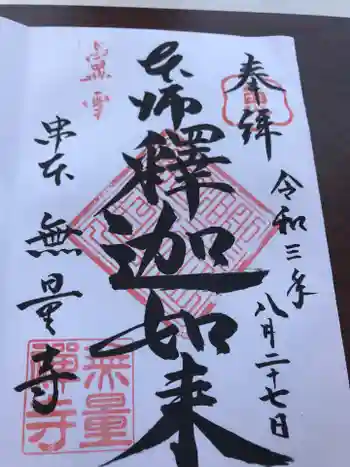 奉拝
令和三年
八月二十七日
本師釋迦如来
串本
無量寺
無量
禅寺